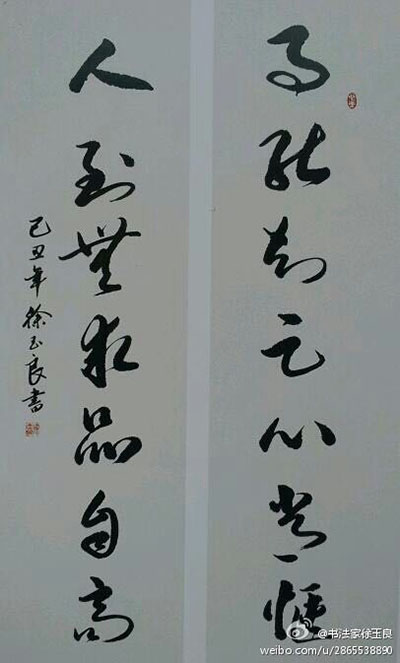 事能知足心常愜
人到無求品自高
己丑年徐玉良書
@书法家徐玉良
weibo.com/u/2865538890